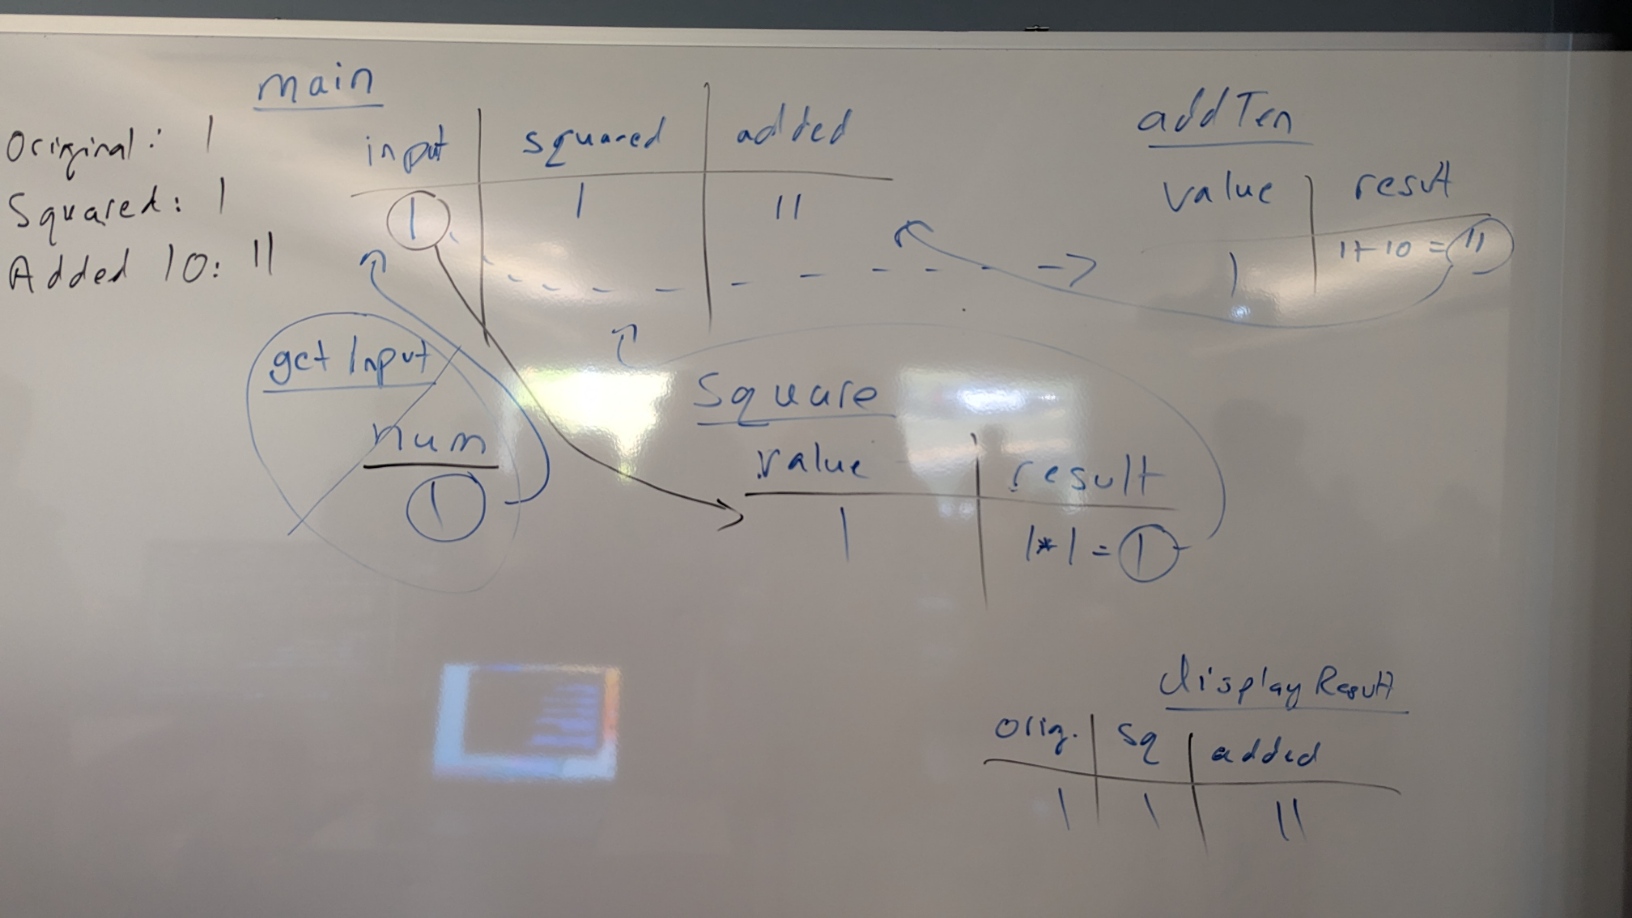 main
input squared added
1 1 11
Original: 1
Squared: 1
Added 10: 11
addTen
value result
1 1+10 = 11
get Input
num
1
Square
value result
1 1*1 = 1
display Result
orig. sq added
1 1 11